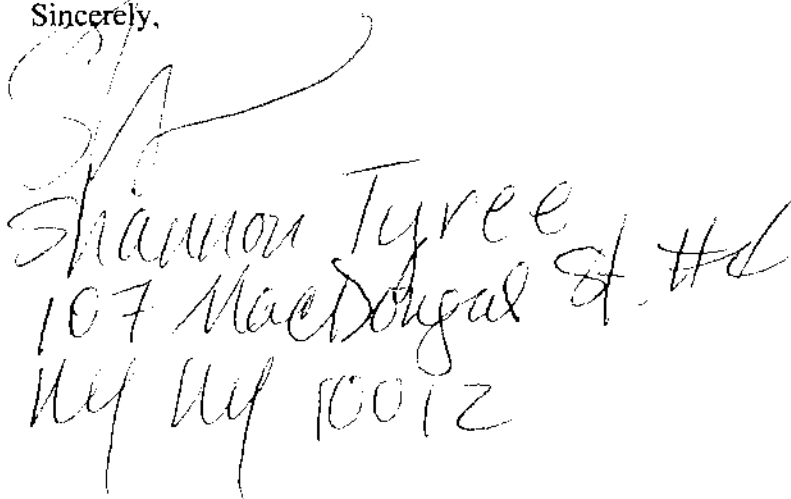 Sincerely,
Shannon Tyree
107 MacDougal St.
NY NY 10012